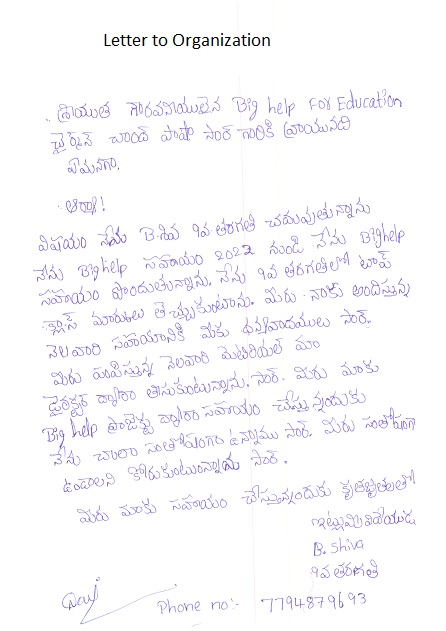 Letter to Organization
శ్రీయుత గౌరవనీయులైన Big help For Education
ఛైర్మెన్ చాంద్ పాషా సార్ గారికి వ్రాయునది
ఏమనగా.
ఆర్యా!
విషయం నేను B.శివ 9వ తరగతి చదువుతున్నాను
నేను Big help సహాయం 2022 నుండి నేను Big help
సహాయం పొందుతున్నాను. నేను 9వ తరగతిలో టాప్
క్లాస్ మార్కులు తెచ్చుకుంటాను. మీరు నాకు అందిస్తున్న
నెలవారి సహాయానికి మీకు ధన్యవాదములు సార్.
మీరు పంపిస్తున్న నెలవారి మెటీరియల్ మా
డైరెక్టర్ ద్వారా తీసుకుంటున్నాను. సార్. మీరు మాకు
Big help ప్రాజెక్టు ద్వారా సహాయం చేస్తున్నందుకు
నేను చాలా సంతోషంగా ఉన్నాము సార్. మీరు సంతోషంగా
ఉండాలని కోరుకుంటున్నాను సార్.
మీరు మాకు సహాయం చేస్తున్నందుకు కృతజ్ఞతలతో
ఇట్లు మీ విదేయుడు
B. Shiva
9వ తరగతి
Phone no:- 7794879693